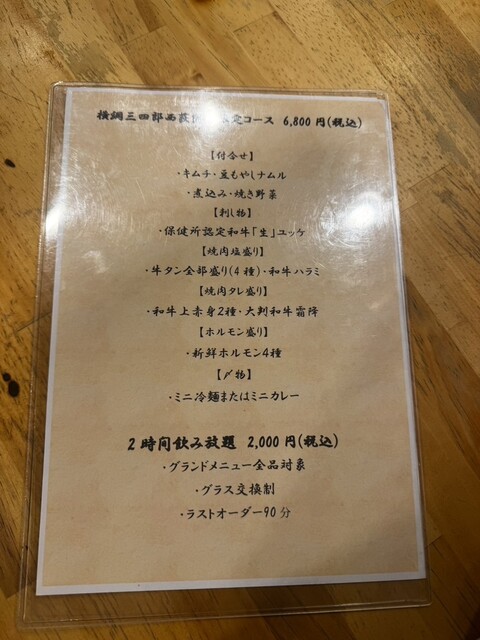 横綱三四郎西荻 定コース 6,800円(税込)
【付合せ】
・キムチ・豆もやしナムル
・煮込み・焼き野菜
【刺し物】
・保健所認定和牛「生」ユッケ
【焼肉塩盛り】
・牛タン全部盛り(4種)・和牛ハラミ
【焼肉タレ盛り】
・和牛上赤身2種・大判和牛霜降
【ホルモン盛り】
・新鮮ホルモン4種
【〆物】
・ミニ冷麺またはミニカレー
2時間飲み放題 2,000円(税込)
・グランドメニュー全品対象
・グラス交換制
・ラストオーダー90分